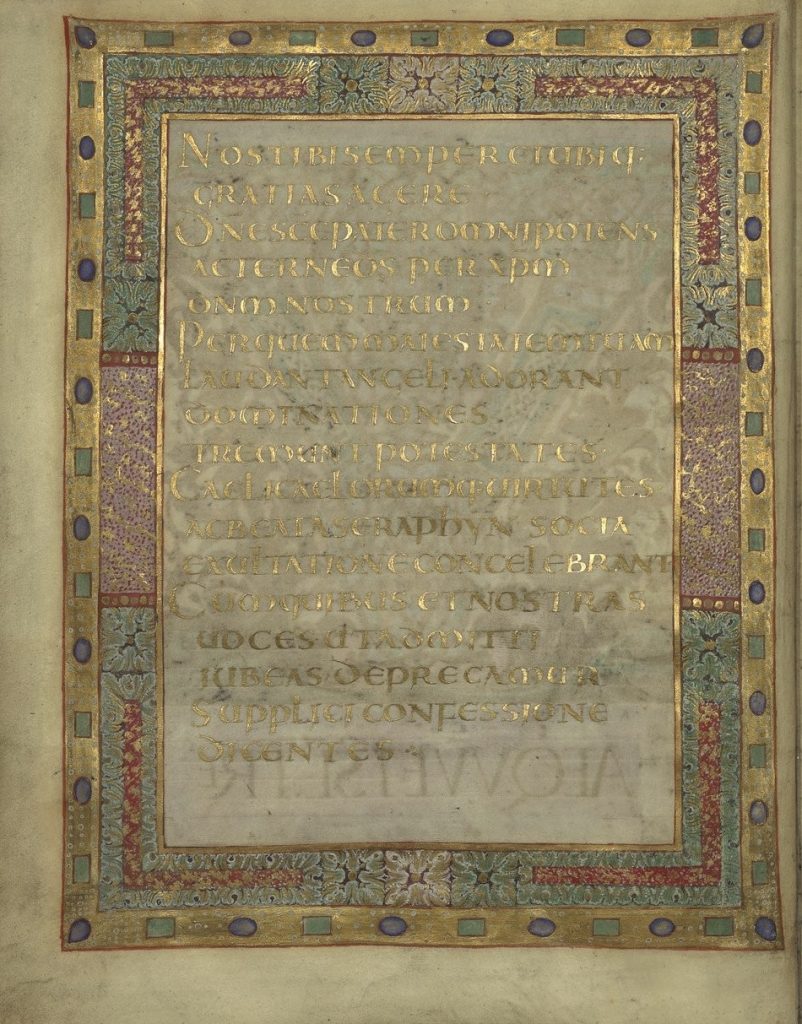 NOS TIBI SEMPER ET UBIQ·
GRATIAS AGERE·
DNE SCE PATER OMNIPOTENS
AETERNE DS PER XPM
DNM NOSTRUM·
PER QUEM MAIESTATEM TUAM
LAUDANT ANGELI· ADORANT
DOMINATIONES
TREMUNT POTESTATES·
CAELI CAELORUMQ· UIRTUTES
AC BEATA SERAPHYN SOCIA
EXULTATIONE CONCELEBRANT
CUM QUIBUS ET NOSTRAS
UOCES UT ADMITTI
IUBEAS DEPRECAMUR
SUPPLICI CONFESSIONE
DICENTES·